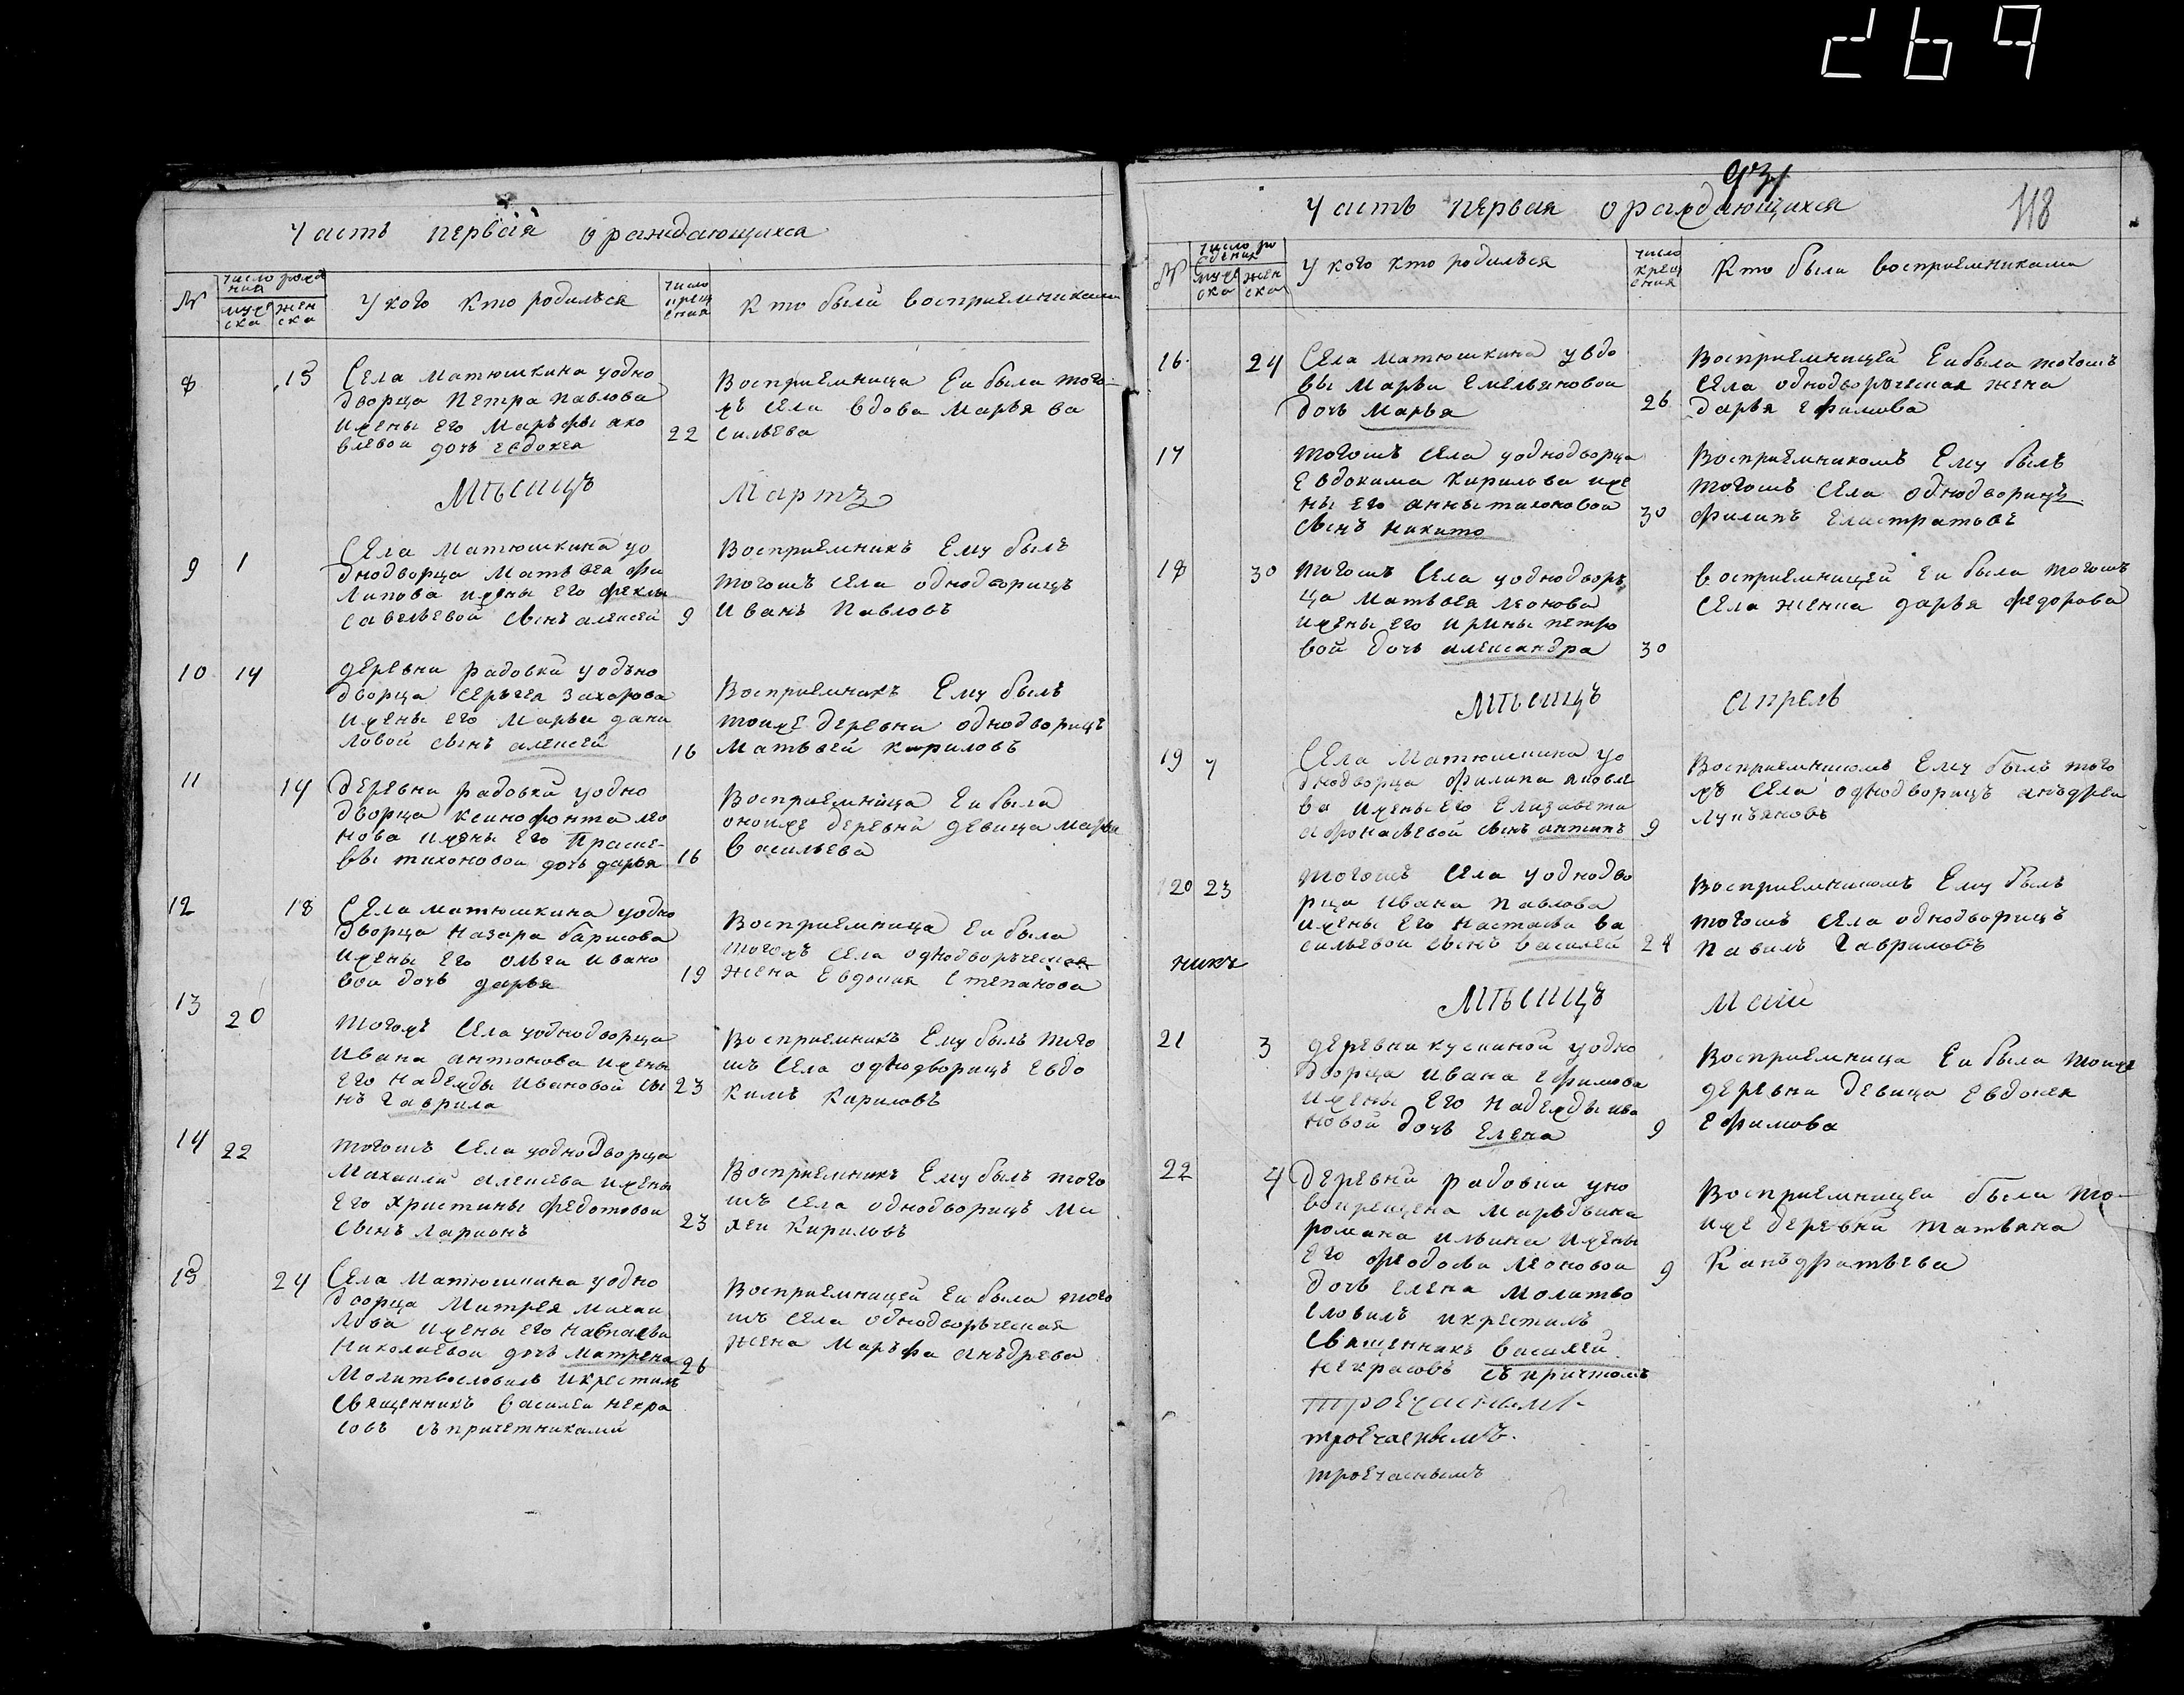 269
Часть первая о раждающихся
№
число рожд
ния
муже
ска
жен
ска
У кого кто родился
число
крещ
ения
Кто были восприемниками
8
15
22
Села Матюшкина уодно
дворца Петра Павлова
ижены его Марьфы яко
влевой дочь Евдокея
Восприемница Еи была того
жъ села вдова Марья ва
сильева
Мѣсицъ Мартъ
9
1
9
Села Матюшкина уо
днодворца Матвея фи
липова ижены его Феклы
савельевой сынъ алексей
Восприемникъ Ему былъ
тогошъ села однодворицъ
Иванъ Павловъ
10
14
16
деревни радовки уодьно
дворца Серьгея Захорова
ижены его Марьи дани
ловой сынъ алексей
Восприемникъ Ему былъ
тоиже деревни однодворицъ
Матьвей кириловъ
11
14
16
деревни радовки уодно
дворца ксинофонта лео
нова ижены его Праске-
вы тихоновой дочь дарья
Восприемница Еи была
оноиже деревни девица марья
Васильева
12
18
19
Села матюшкина уодно
дворца Назара барисова
ижены его ольги ивано
вой дочь дарья
Восприемница Еи была
тогожъ села однодворъческая
жена Евдокия Степанова
13
20
23
тогожъ села уоднодворца
Ивана антонова ижены
его Надежды Ивановой сы
нъ Гаврила
Восприемникъ Ему былъ того
шъ села однодворицъ Евдо
кимъ Кириловъ
14
22
23
тогошъ села уоднодворца
Михаили алексева ижены
его христины федотовой
сынъ Ларионъ
Восприемникъ Ему былъ того
шъ села однодворицъ Ми
хеи Кириловъ
15
24
26
Села Матюшкина уодно
дворца Митрея михаи
лова ижены его настасьи
Николаевой дочь Матрена
Молитвословилъ икрестилъ
священникъ василеи некра
совъ съпричетниками
Восприемницей Еи была того
шъ села однодворъческая
жена Маръфа анъдрева
931
118
Часть первая о раждающихся
№
число ро
дения
муже
ска
жен
ска
У кого кто родилъся
число
крещ
ения
Кто были восприемниками
16
24
26
Села матюшкина увдо
вы Марьи Емельяновой
дочь Марья
Восприемницей Еи была тогошъ
села однодворческая жена
дарья Ефимова
17
30
тогошъ села уоднодворца
Евдокима Кирилова иже
ны его анны тихоновой
сынъ Никито
Восприемникомъ Ему былъ
тогошъ села однодворицъ
филипъ Елистратовъ
18
30
30
тогошъ села уоднодворъ
ца Матьвея леонова
ижены его ирины петро
вой дочь александра
восприемницей Еи была тогошъ
села женка дарья федорова
Мѣсицъ апрель
19
7
9
Села Матюшкина уо
днодворца филипа яковле
ва ижены его Елизавета
афонасьевой сынъ антипъ
Восприемникомъ Ему былъ того
жъ села однодворицъ анъдреи
лукъяновъ
20
23
24
тогошъ села уоднодво
рца Ивана Павлова
ижены его настасьи ва
сильевой сынъ василей
Восприемникомъ Ему былъ
тогошъ села однодворицъ
Павилъ Гавриловъ
никъ
Мѣсицъ Маии
21
3
9
деревни кускиной уодно
дворца ивана Ефимова
ижены его надежды ива
новой дочь Елена
Восприемница Еи была тоиже
деревни девица Евдокея
Ефимова
22
4
9
деревни радовки уно
вокрещена маръдвина
романа ильина ижены
его феодосьи леоновой
дочь Елена молитво
словилъ икрестилъ
священникъ василей
некрасовъ съпричтомъ
Восприемницеи была то-
иже деревни татьяна
Канъдратьева
троечаснымъ.
троечаснымъ